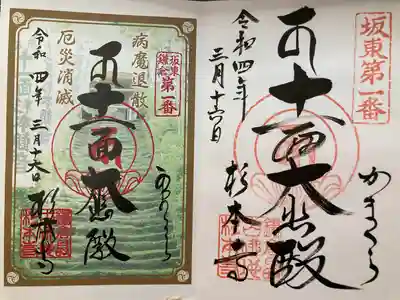 坂東第一番
令和四年
三月十六日
十一面大悲殿
かまくら
杉本寺
坂東
鎌倉
第一番
病魔退散
厄災消滅
令和四年
三月十六日
十一面大悲殿
かまくら
杉本寺